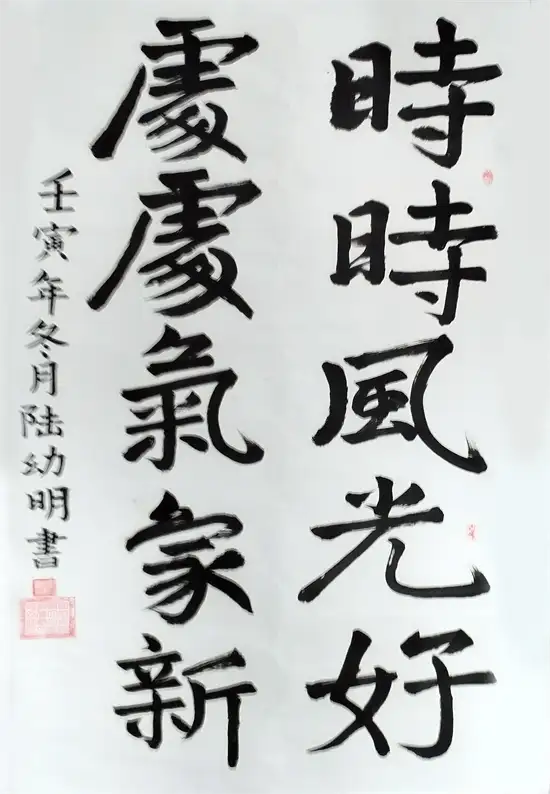 時時風光好
處處氣象新
壬寅年冬月陆幼明書